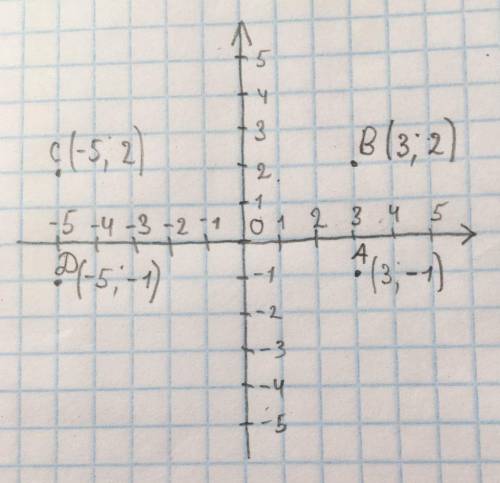 5
4
3
C (-5; 2) B (3; 2)
2
1
-5 -4 -3 -2 -1 0 1 2 3 4 5
D (-5; -1) A (3; -1)
-1
-2
-3
-4
-5